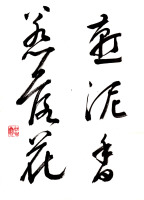 燕泥香
惹落花